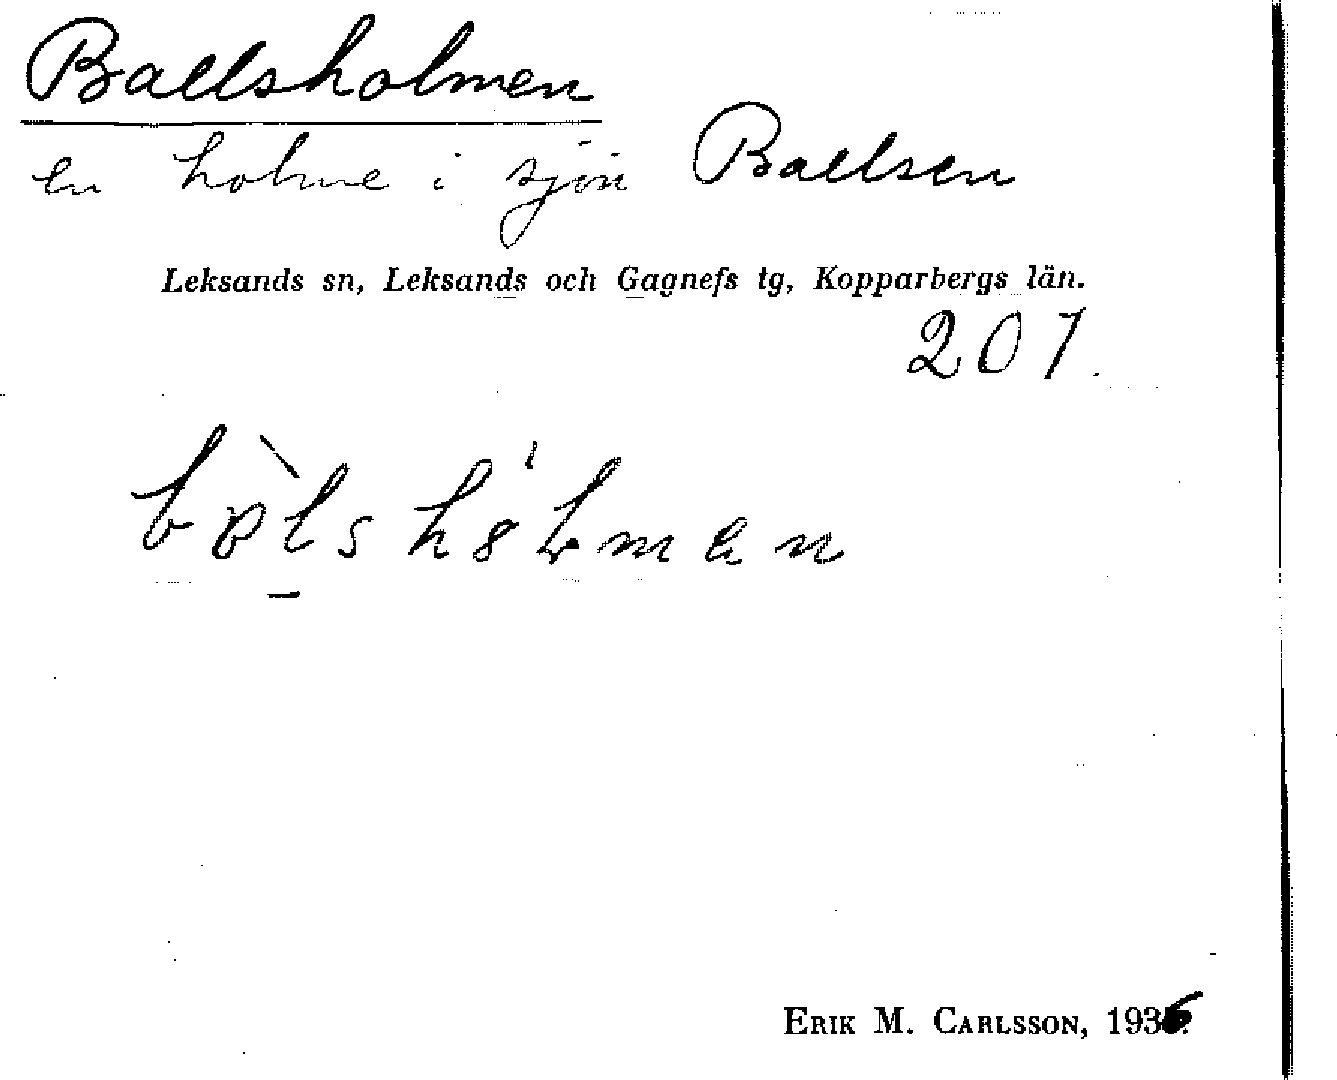 Ballsholmen
en holme i sjön Ballsen
Leksands sn, Leksands och Gagnefs tg, Kopparbergs län.
207.
ERIK M. CARLSSON, 1936.